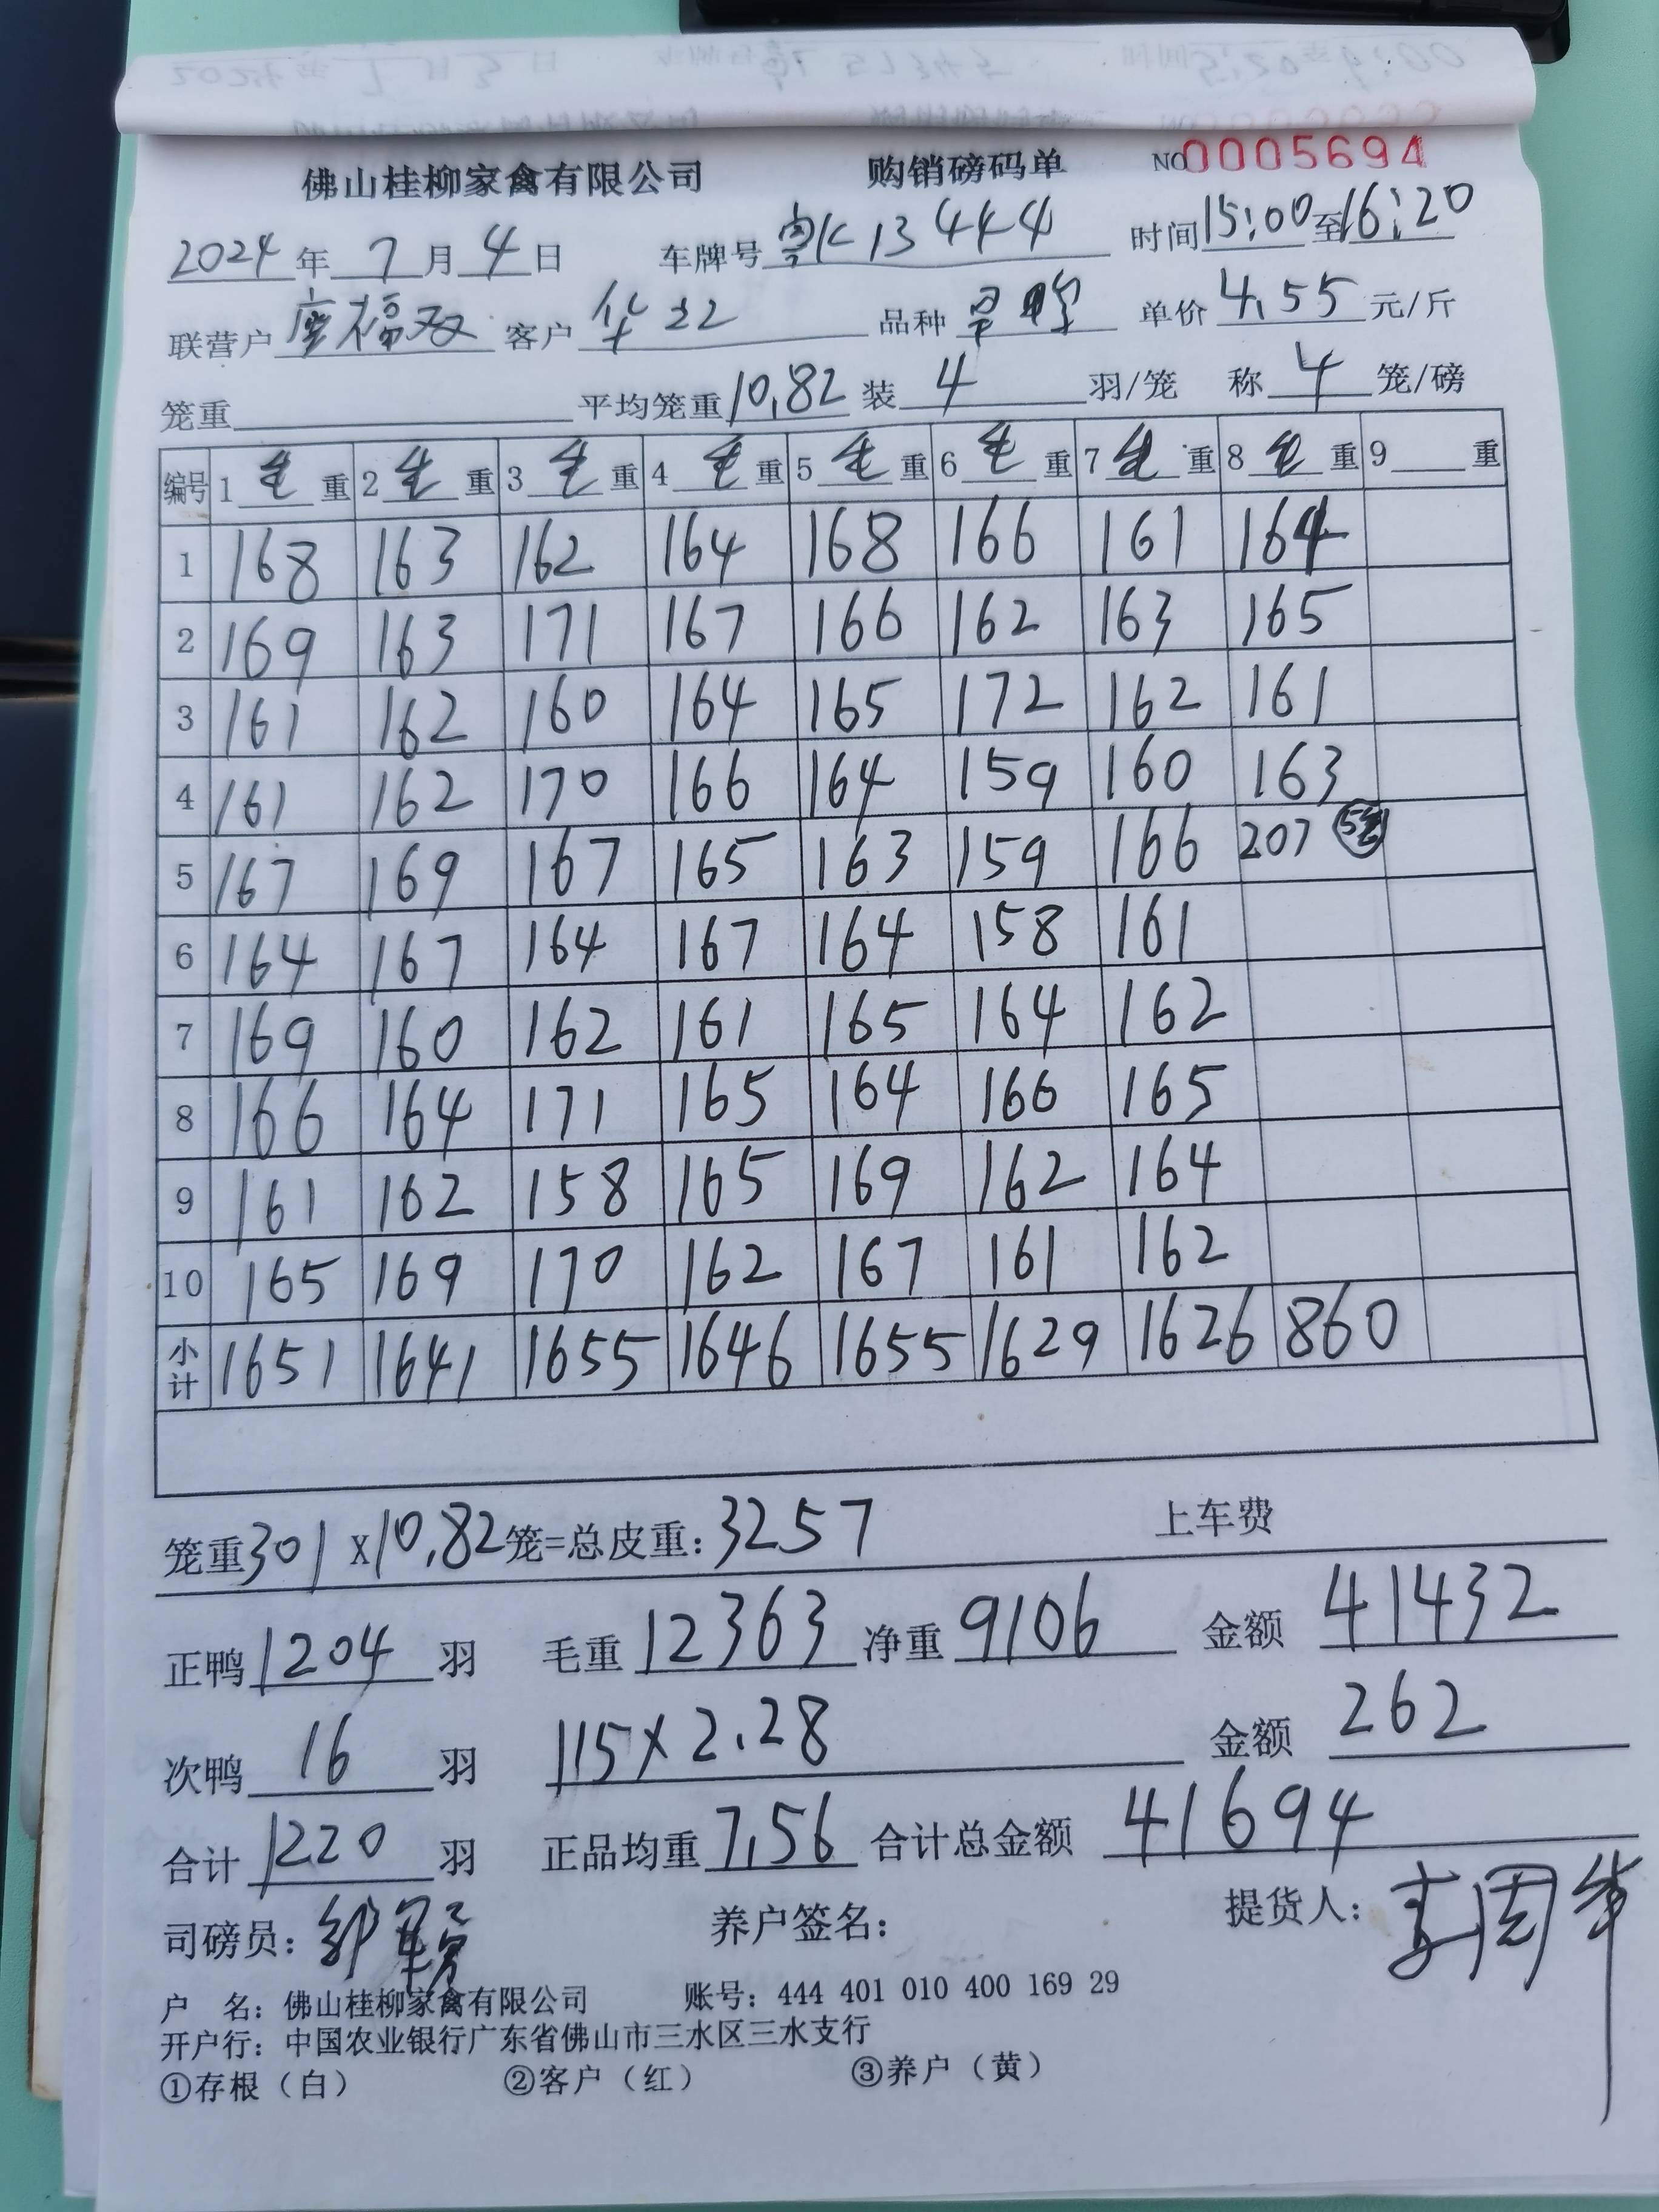 佛山桂柳家禽有限公司 购销磅码单 NO 0005694
2024年7月4日 车牌号 粤K13444 时间 15:00至16:20
联营户 福双 客户 华22 品种 单价 4.55 元/斤
笼重 平均笼重 10.82 装 4 羽/笼 称 4 笼/磅
编号 1 毛 重 2 毛 重 3 毛 重 4 毛 重 5 毛 重 6 毛 重 7 毛 重 8 毛 重 9 重
1 168 163 162 164 168 166 161 164
2 169 163 171 167 166 162 163 165
3 161 162 160 164 165 172 162 161
4 161 162 170 166 164 159 160 163
5 167 169 167 165 163 159 166 207 5笼
6 164 167 164 167 164 158 161
7 169 160 162 161 165 164 162
8 166 164 171 165 164 166 165
9 161 162 158 165 169 162 164
10 165 169 170 162 167 161 162
小计 1651 1641 1655 1646 1655 1629 1626 860
笼重 301 X 10.82 笼=总皮重: 3257 上车费
正鸭 1204 羽 毛重 12363 净重 9106 金额 41432
次鸭 16 羽 115×2.28 金额 262
合计 1220 羽 正品均重 7.56 合计总金额 41694
司磅员: 养户签名: 提货人:
户 名: 佛山桂柳家禽有限公司 账号: 444 401 010 400 169 29
开户行: 中国农业银行广东省佛山市三水区三水支行
①存根(白) ②客户(红) ③养户(黄)